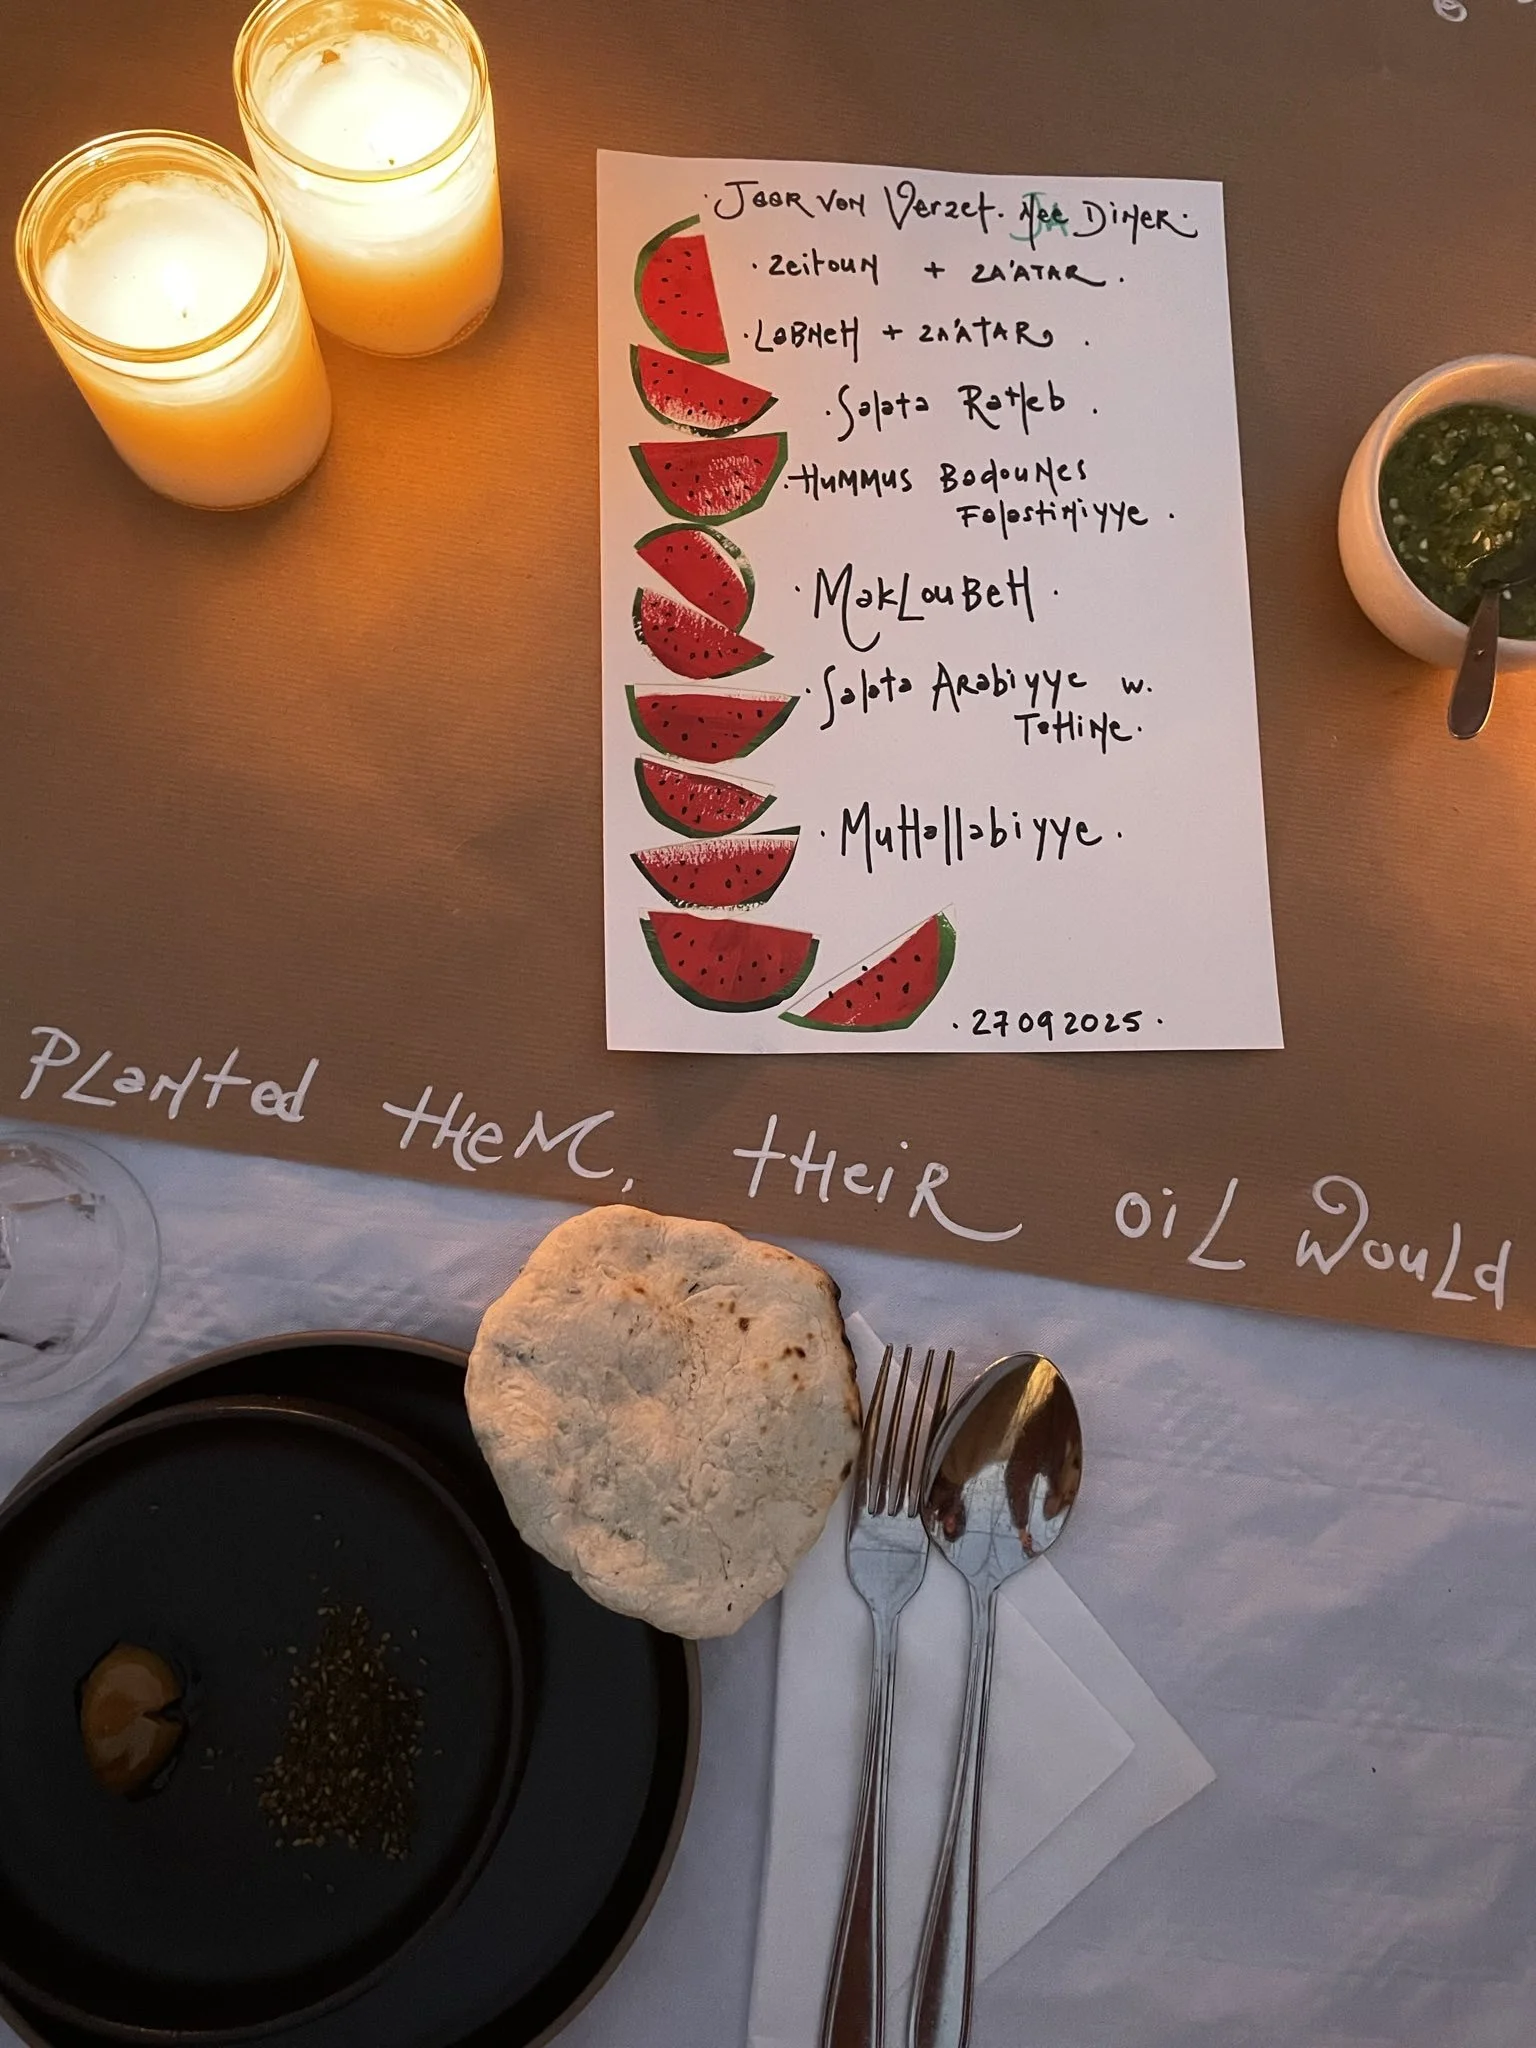 · Jaar van Verzet. Nee JA Diner ·
· Zeitoun + ZA'ATAR .
· Labneh + ZA'ATAR .
· Salata Ratleb .
· Hummus Badounes
Falastiniyye .
· Makloubeh ·
· Salata Arabiyye w.
Tahine .
· Muhallabiyye ·
· 27092025 ·
Planted them, their oil would